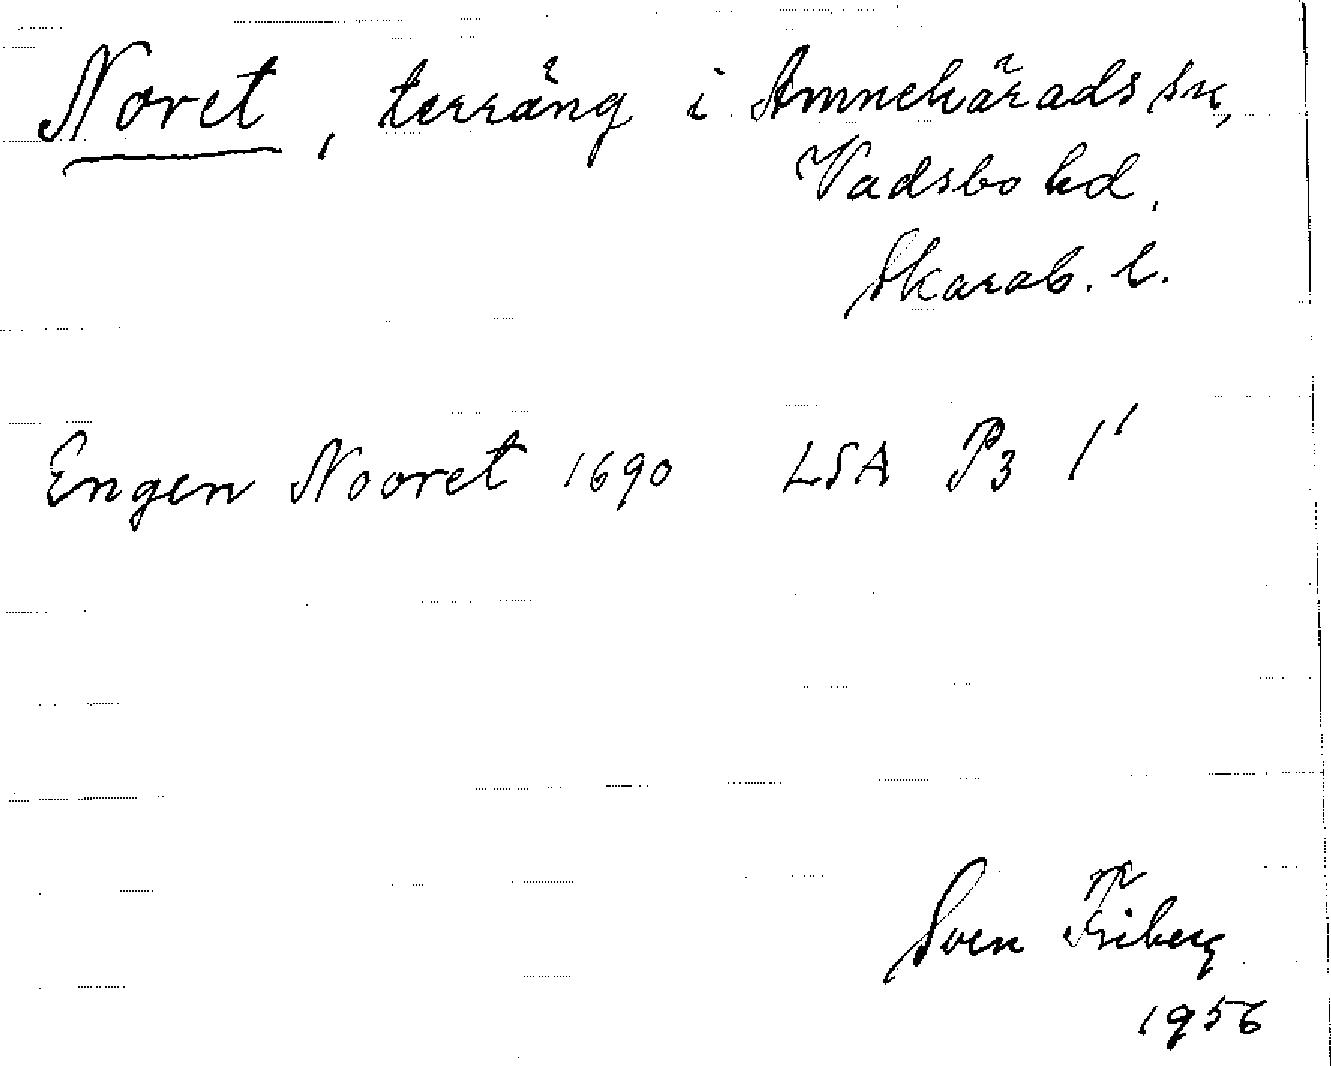 Noret, terräng i Amnehärads sn,
Vadsbo hd,
Skarab. l.
Engen Nooret 1690 LSA P3 1'
Sven Friberg
1956